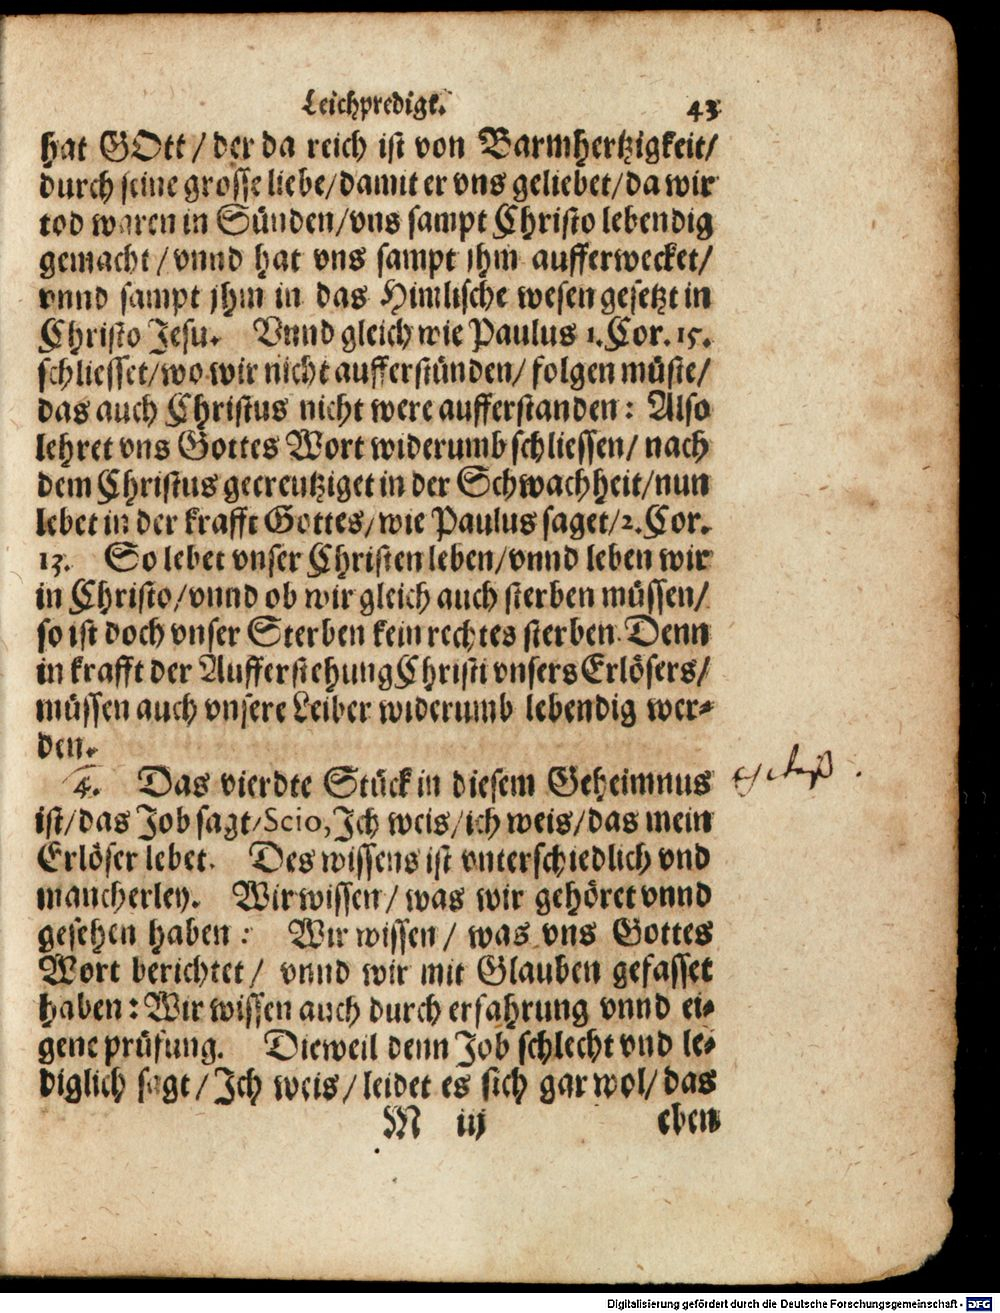 Leichpredigt. 43
hat GOtt/ der da reich ist von Barmhertzigkeit/
durch seine grosse liebe/damit er vns geliebet/da wir
tod waren in Sünden/vns sampt Christo lebendig
gemacht/vnnd hat vns sampt jhm aufferwecket/
vnnd sampt jhm in das Himlische wesen gesetzt in
Christo Jesu. Vnnd gleich wie Paulus 1. Cor. 15.
schliesset/wo wir nicht aufferstünden/ folgen müste/
das auch Christus nicht were aufferstanden: Also
lehret vns Gottes Wort widerumb schliessen/ nach
dem Christus gecreutziget in der Schwachheit/nun
lebet in der krafft Gottes/wie Paulus saget/2. Cor.
13. So lebet vnser Christen leben/vnnd leben wir
in Christo/vnnd ob wir gleich auch sterben müssen/
so ist doch vnser Sterben kein rechtes sterben. Denn
in krafft der Aufferstehung Christi vnsers Erlösers/
müssen auch vnsere Leiber widerumb lebendig wer-
den.
4. Das vierdte Stück in diesem Geheimnus
ist/das Job sagt/Scio, Jch weis/ich weis/das mein
Erlöser lebet. Des wissens ist vnterschiedlich vnd
mancherley. Wir wissen/ was wir gehöret vnnd
gesehen haben: Wir wissen/ was vns Gottes
Wort berichtet/ vnnd wir mit Glauben gefasset
haben: Wir wissen auch durch erfahrung vnnd ei-
gene prüfung. Dieweil denn Job schlecht vnd le-
diglich sagt/Jch weis/leidet es sich gar wol/das
M iij eben
Digitalisierung gefördert durch die Deutsche Forschungsgemeinschaft - DFG